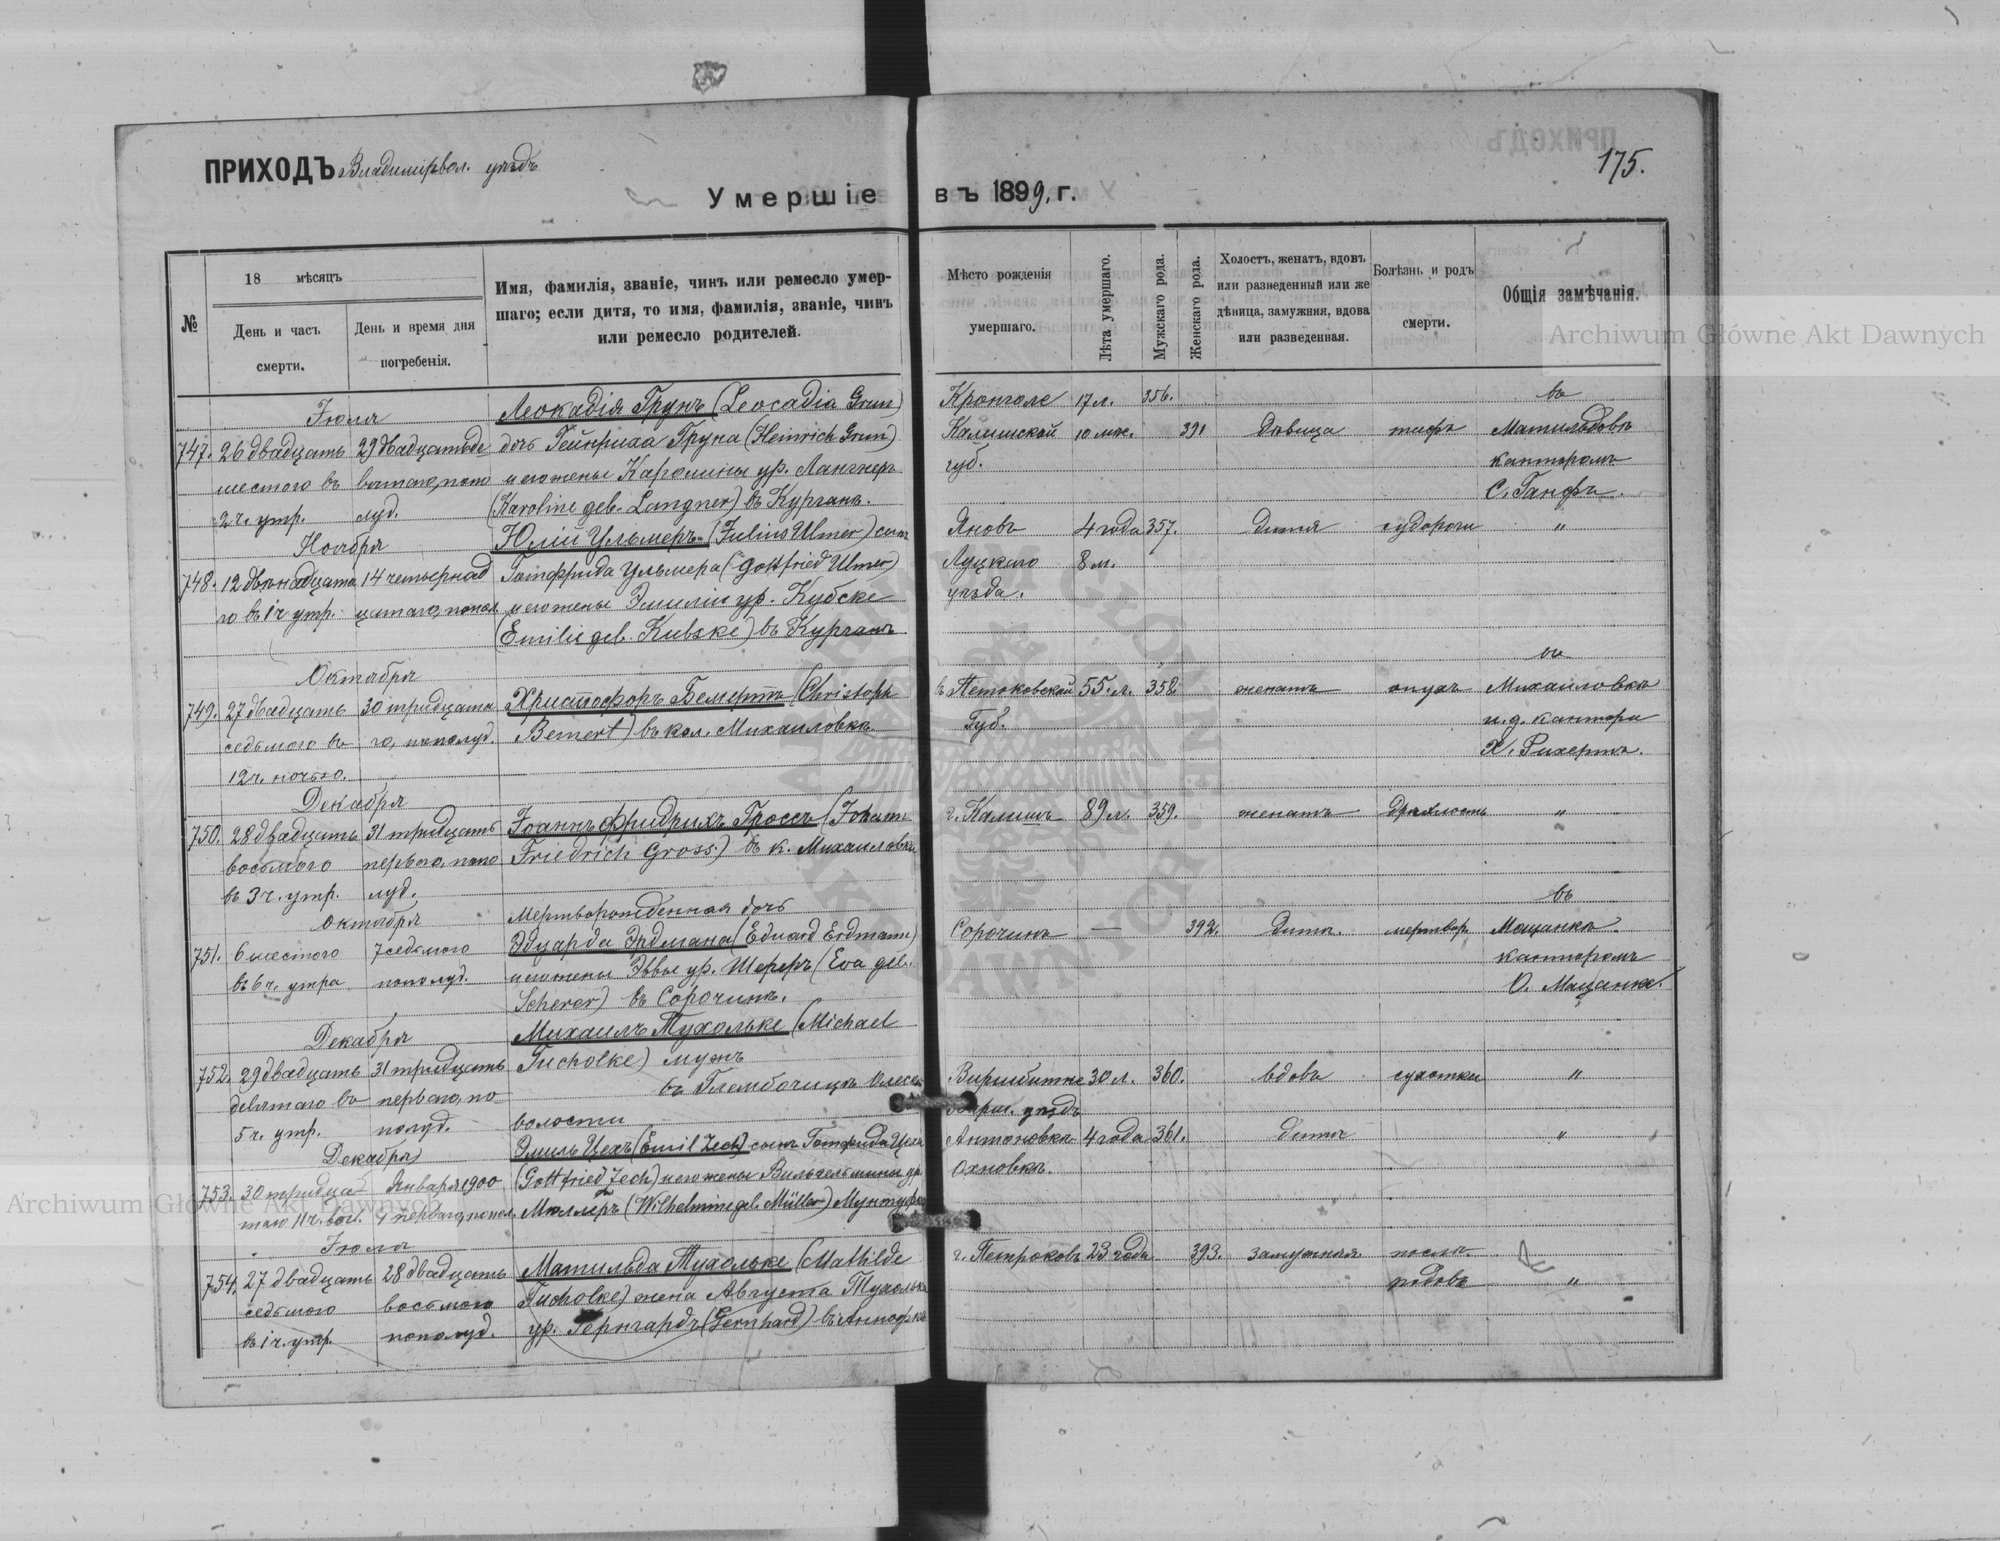 ПРИХОДЪ Владимірвол. уѣздъ
175.
Умершіе въ 1899. г.
№
18 мѣсяцъ
День и часъ смерти.
День и время дня погребенія.
Имя, фамилія, званіе, чинъ или ремесло умер-
шаго; если дитя, то имя, фамилія, званіе, чинъ
или ремесло родителей.
Мѣсто рожденія умершаго.
Лѣта умершаго.
Мужскаго рода.
Женскаго рода.
Холостъ, женатъ, вдовъ
или разведенный или же
дѣвица, замужняя, вдова
или разведенная.
Болѣзнь и родъ смерти.
Общія замѣчанія.
Archiwum Główne Akt Dawnych
Іюля Леокадія Грунъ (Leocadia Grun) 17 л. 356. въ
747. 26 двадцать дочь Гейнриха Груна (Heinrich Grun) Калишской 10 мѣс. 391 дѣвица тифъ
шестого въ и его жены Каролины ур. Лангнеръ губ. канторомъ
2 ч. утр. луд. (Karoline geb. Langner) въ Курганѣ. С. Ганфъ.
Ноября Юлій Ульмеръ (Julius Ulmer) сынъ Яновъ 4 года 357. дитя судороги "
748. 12 14 Готфрида Ульмера (Gottfried Ulmer) Луцкаго 8 м.
го въ 1 ч. утр. и его жены Эмиліи ур. Кубске уѣзда.
(Emilie geb. Kubske) въ Курганѣ
Октября во
749. 27 двадцать 30 тридцата Христофоръ Бемертъ (Christoph 55. л. 358. женатъ опухъ Михаиловкѣ
седьмого въ го, пополуд. Bemert) въ кол. Михаиловкѣ. Губ. и. д. кантора
12 ч. ночью. Х. Рихертъ.
Декабря
750. 28 двадцать 31 тридцать Іоаннъ Фридрихъ Гроссъ (Johann г. Калишъ 89 л. 359. женатъ дряхлость "
восьмого перваго, попо Friedrich Gross) въ к. Михаиловкѣ
въ 3 ч. утр. луд.
Октября Мертворожденная дочь въ
751. 6 шестого 7 седьмого Эдуарда Эрдмана (Eduard Erdmann) Сорочинъ — 392. дитя. мертвор.
въ 6 ч. утра пополуд. и его жены Эввы ур. Шереръ (Eva geb. канторомъ
Scherer) въ Сорочинѣ. О.
Декабря Михаилъ Тухольке (Michael
752. 29 двадцать 31 тридцать Tucholke) мужъ
девятаго въ перваго, по- въ 30 л. 360. вдовъ "
5 ч. утр. полуд. волости уѣздъ
Декабря Эмиль Цехъ (Emil Zech) сынъ Готфрида Цеха Антоновка 4 года 361. дитя "
753. 30 тридца Января 1900 (Gottfried Zech) и его жены Вильгельмины ур. Охновкѣ.
таго 11 ч. веч. Мюллеръ (Wilhelmine geb. Müller)
Archiwum Główne Akt Dawnych
Іюля
754. 27 двадцать 28 двадцать Матильда Тухольке (Mathilde г. Петроковъ 23 года 393. замужняя послѣ
седьмого восьмого Tucholke) жена Августа Тухольке родовъ "
въ 1 ч. утр. пополуд. ур. Гернгардъ (Gernhard)